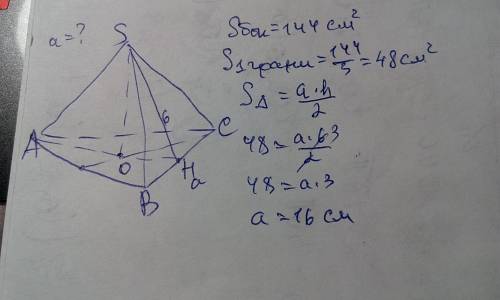 a = ?
S
A
B
C
O
H
6
a
Sбок = 144 см²
S₁грани = 144/3 = 48 см²
S△ = a·h/2
48 = a·6 3/2
48 = a·3
a = 16 см